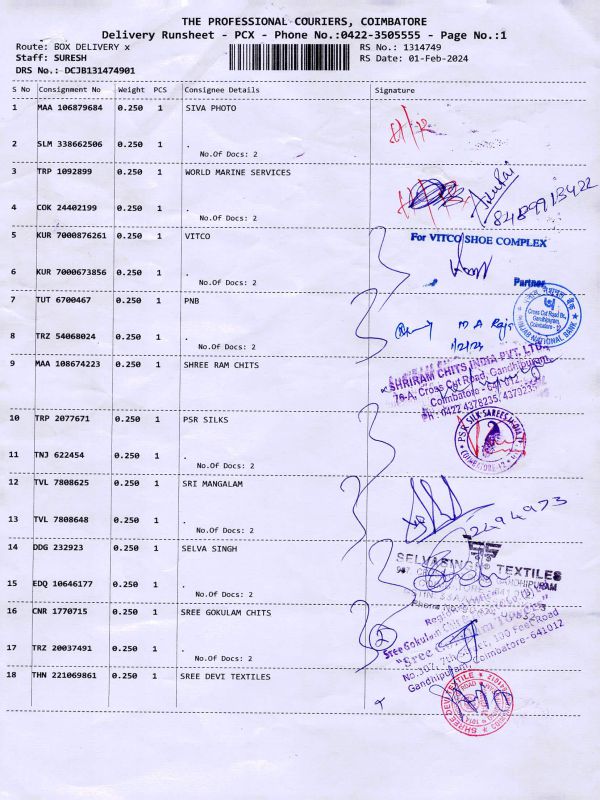 THE PROFESSIONAL COURIERS, COIMBATORE
Delivery Runsheet - PCX - Phone No.:0422-3505555 - Page No.:1
Route: BOX DELIVERY x
RS No.: 1314749
Staff: SURESH
RS Date: 01-Feb-2024
DRS No.: DCJB131474901
S No Consignment No Weight PCS Consignee Details Signature
1 MAA 106879684 0.250 1 SIVA PHOTO
2 SLM 338662506 0.250 1 .
No.Of Docs: 2
3 TRP 1092899 0.250 1 WORLD MARINE SERVICES
4 COK 24402199 0.250 1 .
No.Of Docs: 2
8489913422
5 KUR 7000876261 0.250 1 VITCO
For VITCO SHOE COMPLEX
6 KUR 7000673856 0.250 1 .
No.Of Docs: 2
Partner
7 TUT 6700467 0.250 1 PNB
Cross Cut Road Br.,
Gandhipuram,
Coimbatore - 12
PUNJAB NATIONAL BANK
M A Raja
1/2/23
8 TRZ 54068024 0.250 1 .
No.Of Docs: 2
9 MAA 108674223 0.250 1 SHREE RAM CHITS
SHRIRAM CHITS INDIA PVT. LTD.,
76-A, Cross Cut Road, Gandhipuram,
Coimbatore - 641 012
Ph : 0422 4378235, 4379235
10 TRP 2077671 0.250 1 PSR SILKS
PSR SILK SAREES INDIA
COIMBATORE-12
11 TNJ 622454 0.250 1 .
No.Of Docs: 2
12 TVL 7808625 0.250 1 SRI MANGALAM
13 TVL 7808648 0.250 1 .
No.Of Docs: 2
2494973
14 DDG 232923 0.250 1 SELVA SINGH
SELVASINGH TEXTILES
15 EDQ 10646177 0.250 1 .
No.Of Docs: 2
16 CNR 1770715 0.250 1 SREE GOKULAM CHITS
2
Sree Gokulam Chit
No.307, 7th Street, 100 Feet Road
Gandhipuram, Coimbatore-641012
17 TRZ 20037491 0.250 1 .
No.Of Docs: 2
18 THN 221069861 0.250 1 SREE DEVI TEXTILES
SHREE DEVI TEXTILE